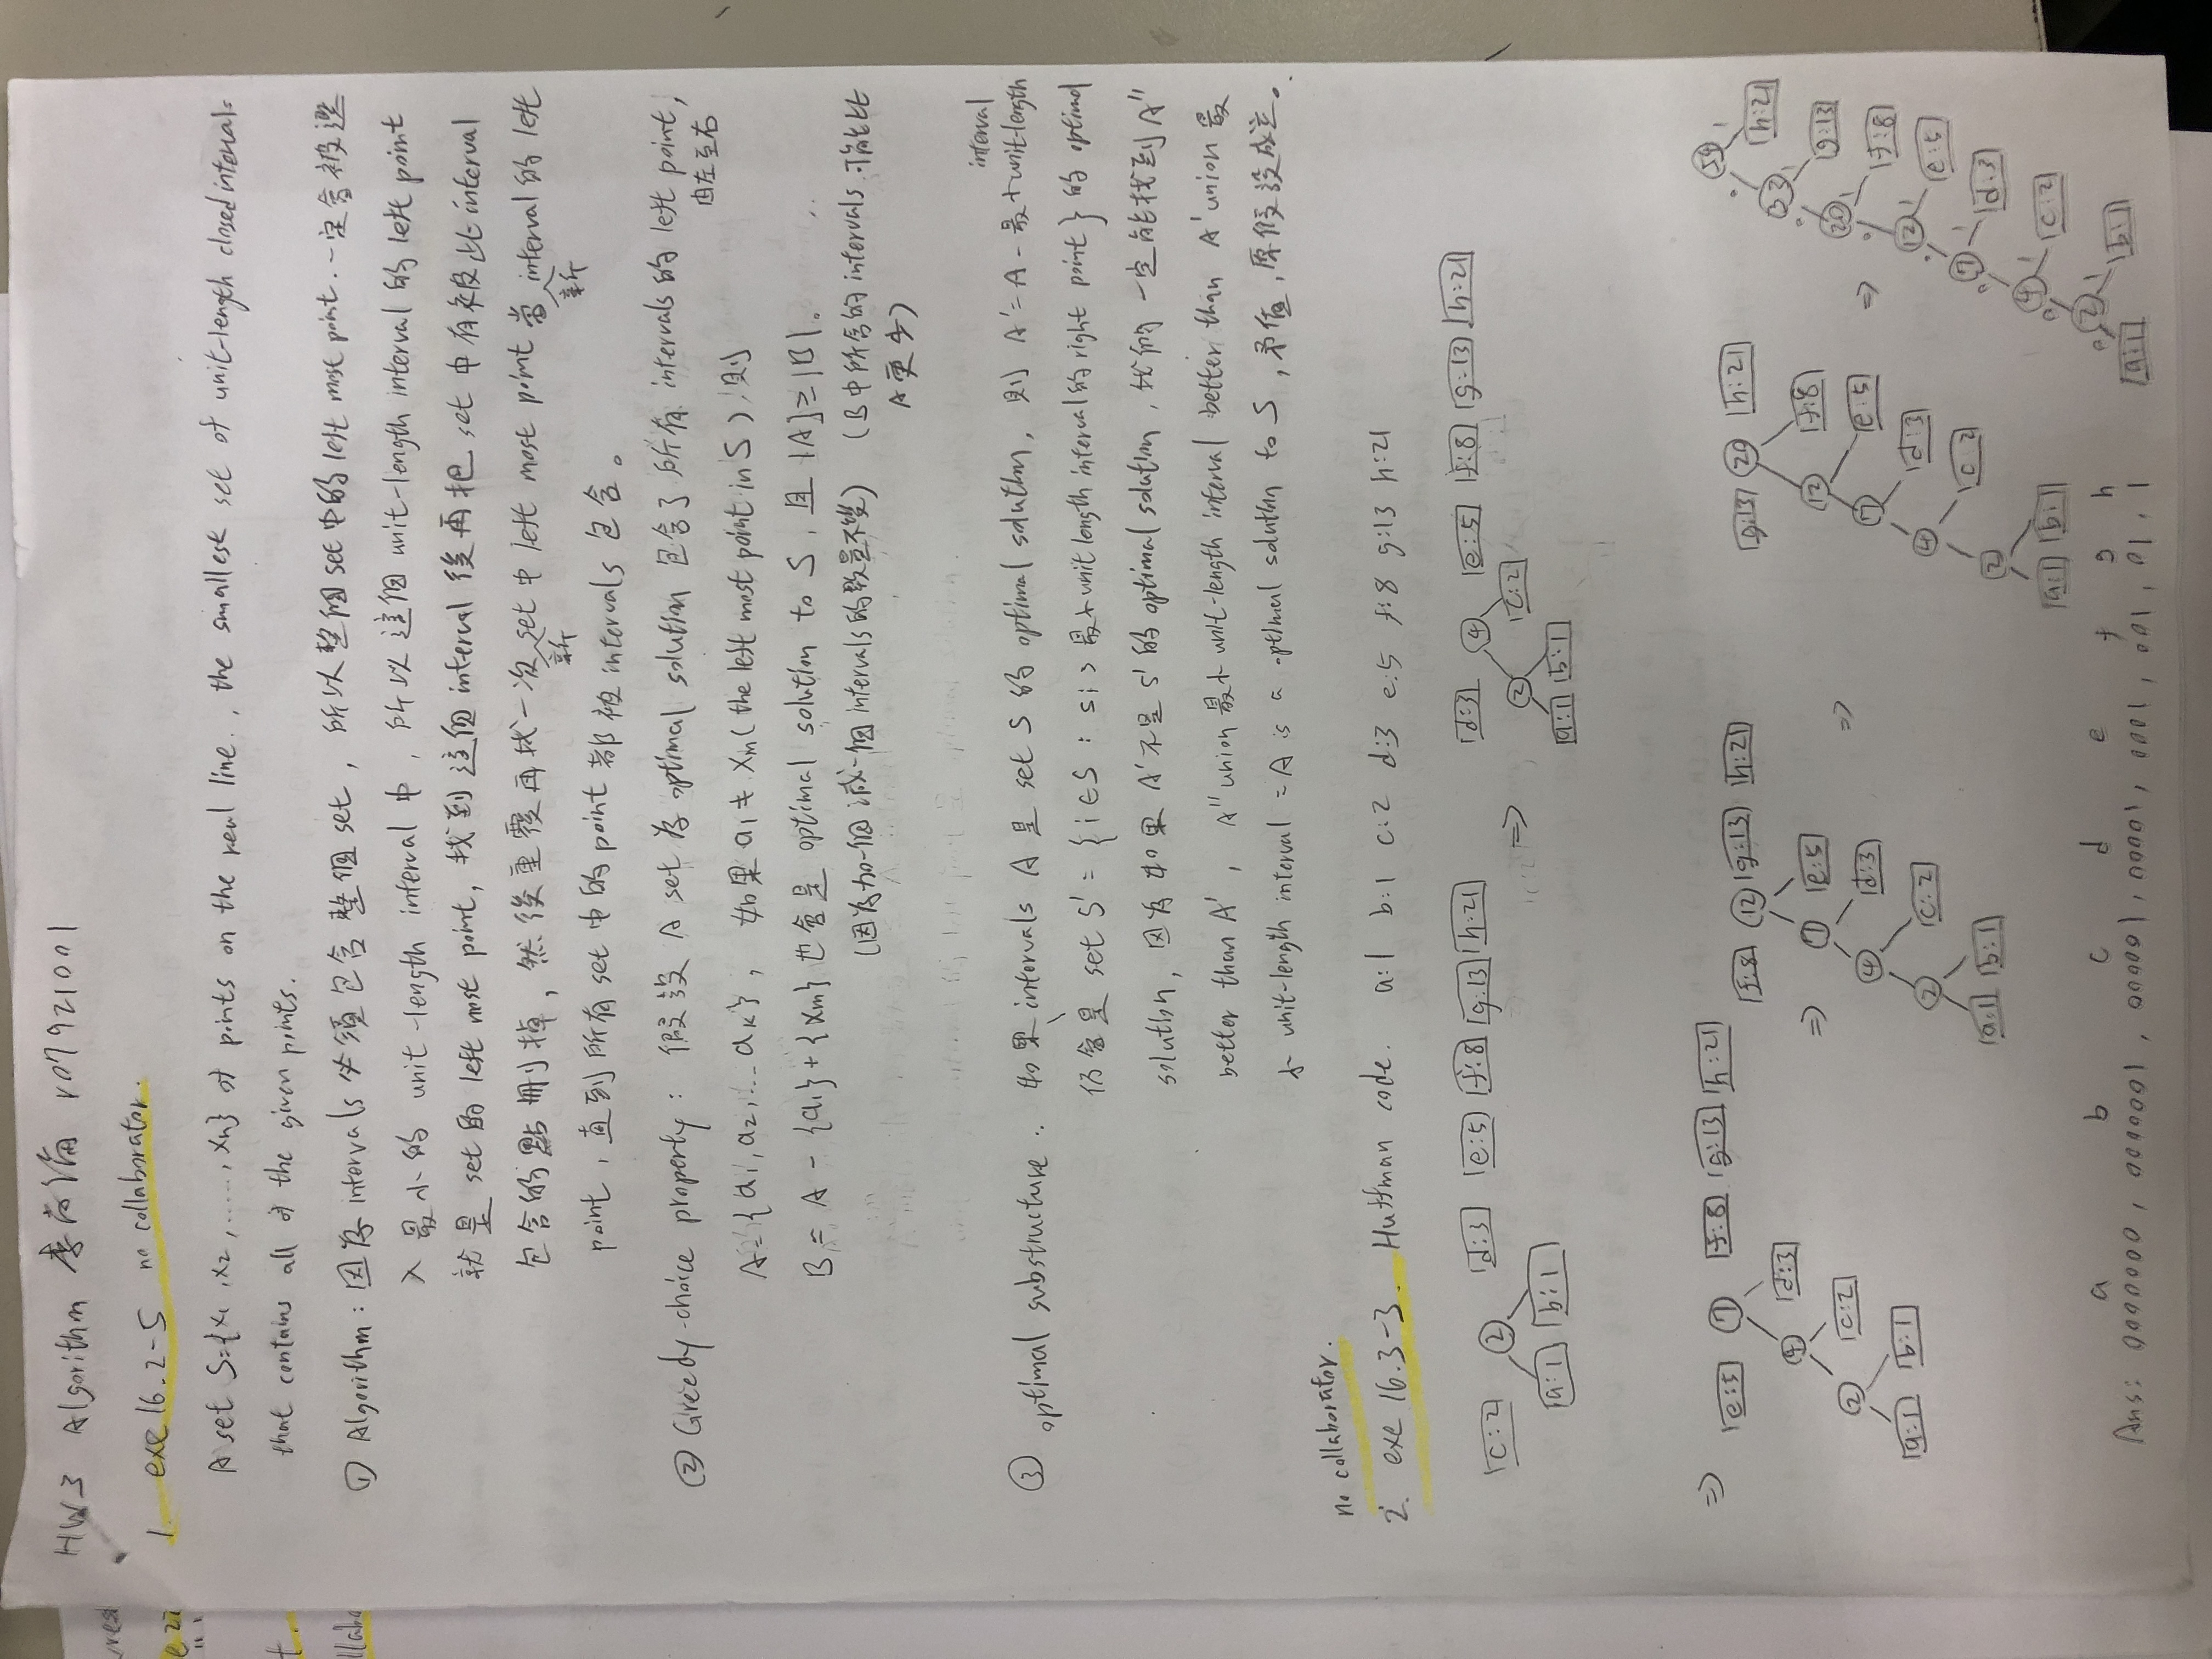 HW3 Algorithm 李尚倫 r07921001
1. exe 16.2-5 no collaborator.
A set S={x1, x2, ....., xn} of points on the real line., the smallest set of unit-length closed intervals
that contains all of the given points.
① Algorithm: 因為 intervals 必須包含整個 set, 所以整個 set 中的 left most point. 一定會被選
入最小的 unit-length interval 中, 所以這個 unit-length interval 的 left point
就是 set 的 left most point, 找到這個 interval 後再把 set 中有被此 interval
包含的點刪掉, 然後重覆再找一次新 set 中 left most point 當新 interval 的 left
point, 直到所有 set 中的 point 都被 intervals 包含。
② Greedy-choice property: 假設 A set 為 optimal solution 包含了所有 intervals 的 left point,
由左至右
A={a1, a2, ... ak}, 如果 a1 ≠ xm (the left most point in S), 則
B = A - {a1} + {xm} 也會是 optimal solution to S, 且 |A| ≥ |B|.
(因為加一個減一個 intervals 的數量不變) (B中所含的 intervals 可能比
A更少)
interval
③ optimal substructure: 如果 intervals A 是 set S 的 optimal solution, 則 A' = A - 最小 unit-length
仍會是 set S' = {i∈S : si > 最小 unit length interval 的 right point} 的 optimal
solution, 因為如果 A' 不是 S' 的 optimal solution, 我們一定能找到 A''
better than A', A'' union 最小 unit-length interval better than A' union 最
小 unit-length interval = A is a optimal solution to S, 矛盾, 原假設成立。
no collaborator.
2. exe 16.3-3. Huffman code. a:1 b:1 c:2 d:3 e:5 f:8 g:13 h:21
c:2 2 d:3 e:5 f:8 g:13 h:21
a:1 b:1
⇒
d:3 4 e:5 f:8 g:13 h:21
2 c:2
a:1 b:1
⇒
e:5 7 f:8 g:13 h:21
4 d:3
2 c:2
a:1 b:1
⇒
f:8 12 g:13 h:21
7 e:5
4 d:3
2 c:2
a:1 b:1
⇒
g:13 20 h:21
12 f:8
7 e:5
4 d:3
2 c:2
a:1 b:1
⇒
54
0 1
33 h:21
0 1
20 g:13
0 1
12 f:8
0 1
7 e:5
0 1
4 d:3
0 1
2 c:2
0 1
a:1 b:1
a b c d e f g h
Ans: 0000000, 0000001, 000001, 00001, 0001, 001, 01, 1